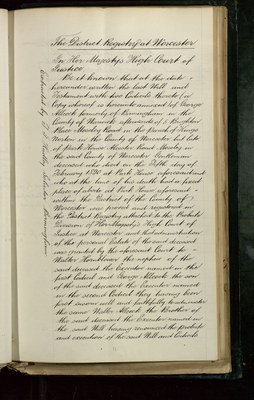 The District Registry at Worcester
In Her Majesty's High Court of
Justice
Be it known that at the date
hereunder written the last Will and
Testament with two Codicils thereto (a
Copy whereof is hereunto annexed) of George
formerly of Birmingham in the
County of Warwick afterwards of
Place Moseley Road in the Parish of Kings
Norton in the County of Worcester but late
of Park House Road Moseley in
the said County of Worcester Gentleman
deceased who died on the fifth day of
February 1880 at Park House aforesaid and
who at the time of his death had a fixed
place of abode at Park House aforesaid
within the District of the County of
Worcester was proved and registered in
the District Registry attached to the Probate
Division of Her Majesty's High Court of
Justice at Worcester and that administration
of the personal Estate of the said deceased
was granted by the aforesaid Court to
Walter the nephew of the
said deceased the Executor named in the
first Codicil and George the son
of the said deceased the Executor named
in the second Codicil they having been
first sworn well and faithfully to administer
the same Walter the Brother of
the said deceased the Executor named in
the said Will having renounced the probate
and execution of the said Will and Codicils